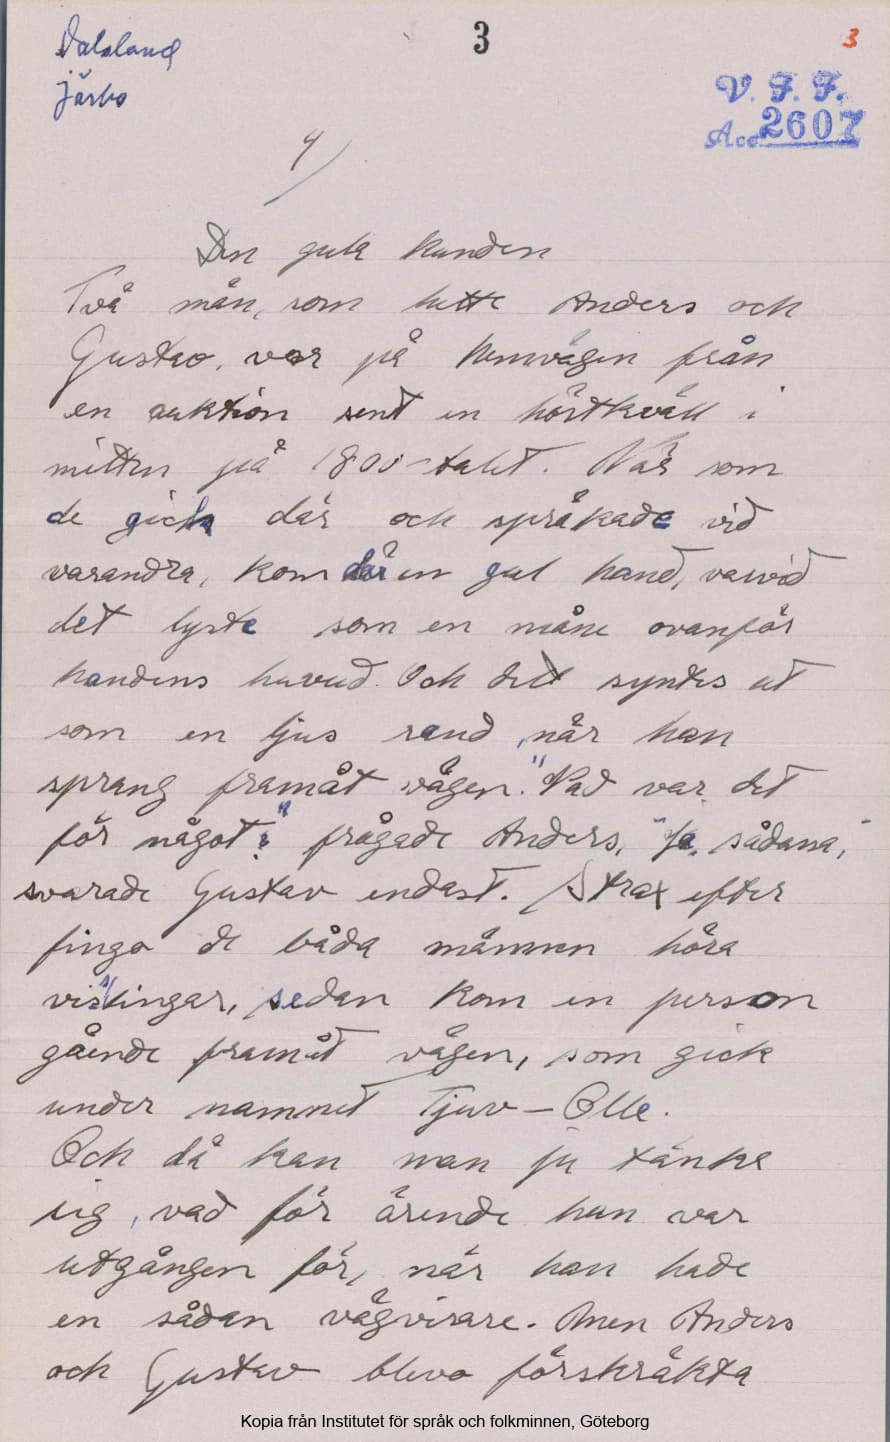 Dalsland
Järbo
3
3
V. F. F.
Acc. 2607
4
Den gula hunden
Två män, som hette Anders och
Gustav, var på hemvägen från
en auktion sent en höstkväll i
mitten på 1800-talet. När som
de gick där och språkade vid
varandra, kom där en gul hund, varvid
det lyste som en måne ovanför
hundens huvud. Och det syntes ut
som en ljus rand, när han
sprang framåt vägen. "Vad var det
för något?" frågade Anders, "Ja, sådana,"
svarade Gustav endast. Strax efter
fingo de båda männen höra
visslingar, sedan kom en person
gående framåt vägen, som gick
under namnet Tjuv-Olle.
Och då kan man ju tänka
sig, vad för ärende han var
utgången för, när han hade
en sådan vägvisare. Men Anders
och Gustav blevo förskräkta
Kopia från Institutet för språk och folkminnen, Göteborg